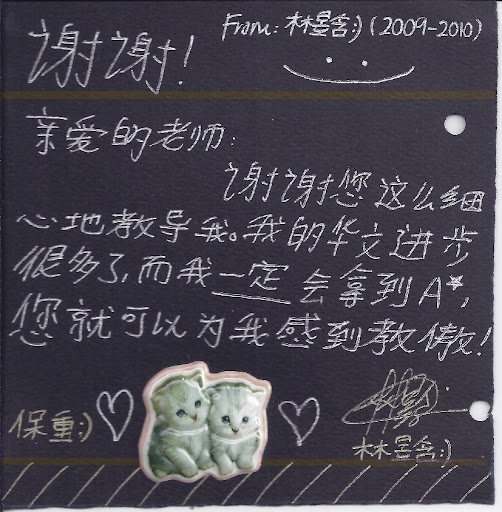 谢谢! From: 林昱含:) (2009-2010)
亲爱的老师:
谢谢您这么细
心地教导我。我的华文进步
很多了,而我一定会拿到A*,
您就可以为我感到教傲!
保重:)
林昱含:)